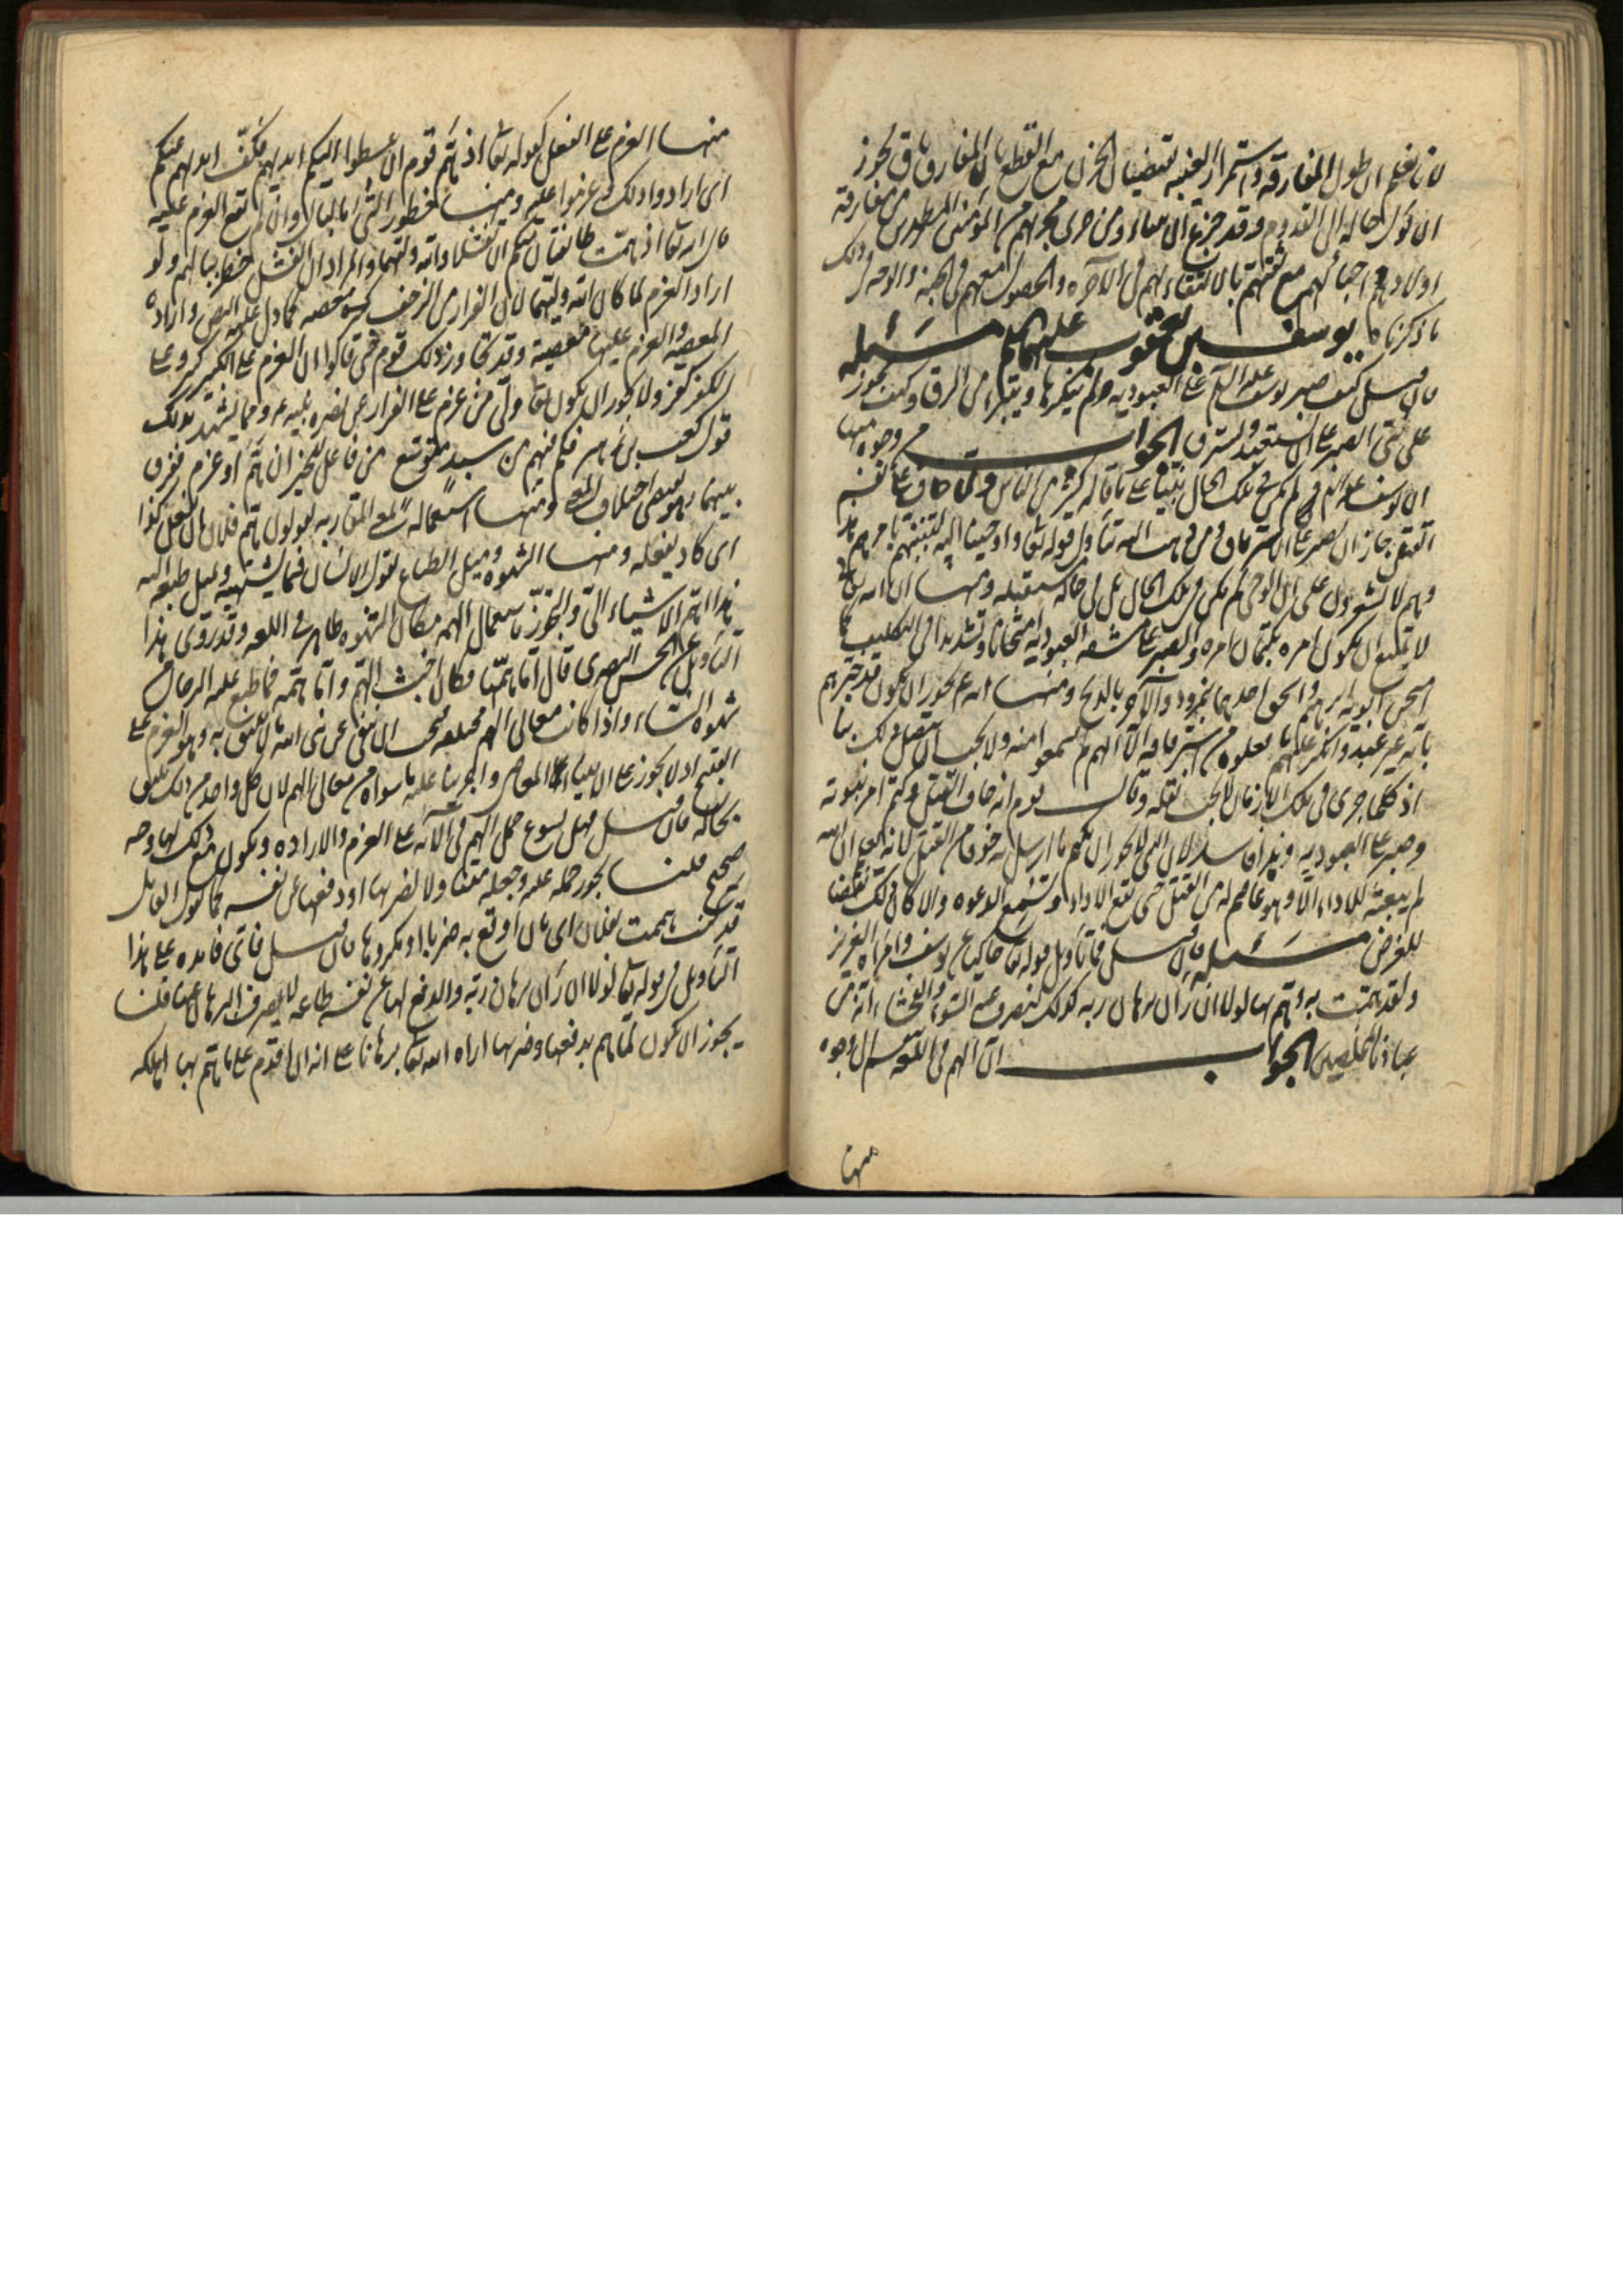 لانا نعلم ان طول المفارقة واستمرار الغيبة يقتضيان الحزن مع القطع بان المفارق باق يجوز
ان يؤل حاله الى القدوم وقد جزع الانبياء ومن جرى مجريهم من المؤمنين المطهرين من مفارقة
اولادهم واحبائهم مع ثقتهم بالالتقاء بهم فى الآخرة والحصول معهم فى الجنة والوجه فى ذلك
ما ذكرناه يوسف بن يعقوب عليهما السلم مسئلة
فان قيل كيف صبر يوسف عليه السلم على العبودية ولم ينكرها ويتبرأ من الرق وكيف يجوز
على نبى الصبر على ان يستعبد ويسترق الجواب وجوه منها
ان يوسف عليه السلم لم يكن فى تلك الحال نبيا على ما قاله كثير من الناس ولما خاف على نفسه
القتل جاز ان يصبر على الاسترقاق ومن ذهب اليه تناول قوله تعا واوحينا اليه لتنبئنهم بامرهم هذا
وهم لا يشعرون على ان الوحى لم يكن فى تلك الحال بل فى حال مستقبله ومنها ان الله تعا
لا يمتنع ان يكون امره بكتمان امره والصبر على مشقة العبودية امتحانا وتشديدا فى التكليف كما
امتحن ابويه ابرهيم واسحق احدهما بنمرود والآخر بالذبح ومنها انه يجوز ان يكون قد خبرهم
بانه غير عبد وانكر عليهم ما فعلوه من استرقاقه الا انهم لم يسمعوا منه ولا يجب ان يتصل ذلك بنا
اذ كلما جرى فى تلك الازمان لا يجب نقله وقال قوم انه خاف القتل وكتم امر نبوته
وصبر على العبودية وهذا فاسد لان النبى لا يجوز ان يكتم ما ارسل به خوفا من القتل لانه يعلم ان الله
لم يبعثه للاداء الا وهو عاصم له من القتل حتى يقع الاداء وتسمع الدعوة والا كان ذلك نقضا
للغرض مسئلة فان قيل فما تأويل قوله تعا حاكيا عن يوسف وامرأة العزيز
ولقد همت به وهم بها لولا ان رأى برهان ربه كذلك لنصرف عنه السوء والفحشاء انه من
عبادنا المخلصين الجواب ان الهم فى اللغة ينقسم الى وجوه
منها
منها العزم على الفعل كقوله تعا اذ هم قوم ان يبسطوا اليكم ايديهم فكف ايديهم عنكم
اى ارادوا ذلك وعزموا عليه ومنها خطور الشىء بالبال وان لم يقع العزم عليه
قال الله تعا اذ همت طائفتان منكم ان تفشلا والله وليهما والمراد ان الفشل خطر ببالهم ولو
اراد العزم لما كان الله وليهما لان الفرار من الزحف كبيرة معصية كما دل عليه النص وارادة
المعصية والعزم عليها معصية وقد تجاوز ذلك قوم حتى قالوا ان العزم على الكبير كبير وعلى
الكفر كفر ولا يجوز ان يكون تعا ولى من عزم على الفرار عن نصرة نبيه ومما يشهد بذلك
قول كعب بن زهير فكم فيهم من سيد متوسع من فاعل للخير ان هم او عزم ففرق
بينهما وهو يقتضى اختلاف المعنى ومنها استعماله بمعنى المقاربة يقولون هم فلان ان يفعل كذا
اى كاد يفعله ومنها الشهوة وميل الطباع يقول الانسان فيما يشتهيه ويميل طبعه اليه
هذا اهم الاشياء الى والتجوز باستعمال الهم مكان الشهوة ظاهر فى اللغة وقد روى هذا
التأويل عن الحسن البصرى قال اما همها فكان اخبث الهم واما همه فما طبع عليه الرجال من
شهوة النساء واذا كانت معانى الهم مختلفة نفى عن نبى الله ما لا يليق به وهو العزم على
القبيح اذ لا يجوز على الانبياء المعاصى واجرينا عليه ما سواه من معانى الهم لان كل واحد من ذلك يليق
بحاله فان قيل فهل يسوغ حمل الهم فى الآية على العزم والارادة ويكون مع ذلك لها وجه
صحيح قلنا يجوز حمله عليه وجعله متعلقا بضربها او دفعها عن نفسه كما يقول القائل
قد كنت هممت بفلان اى بان اوقع به ضربا او مكروها فان قيل فاى فائدة على هذا
التأويل فى قوله تعا لولا ان رأى برهان ربه والدفع لها عن نفسه طاعة لا يصرف البرهان عنها قلنا
يجوز ان يكون لما هم بدفعها وضربها اراه الله تعا برهانا على انه ان اقدم على ما هم بها اهلكه